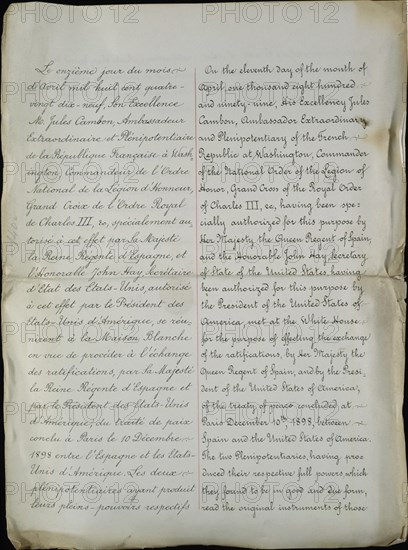 Le onzième jour du mois
d'Avril mil huit cent quatre-
vingt dix-neuf, Son Excellence
Mr. Jules Cambon, Ambassadeur
Extraordinaire et Plénipotentiaire
de la République Française à Wash-
ington, Commandeur de l'Ordre
National de la Légion d'Honneur,
Grand Croix de l'Ordre Royal
de Charles III, &c, spécialement au-
torisé à cet effet par Sa Majesté
la Reine Régente d'Espagne, et
l'Honorable John Hay, Secrétaire
d'Etat des Etats-Unis autorisé
à cet effet par le Président des
Etats-Unis d'Amérique, se réu-
nirent à la Maison Blanche
en vue de procéder à l'échange
des ratifications, par Sa Majesté
la Reine Régente d'Espagne et
par le Président des Etats-Unis
d'Amérique, du traité de paix
conclu à Paris le 10 Décembre
1898 entre l'Espagne et les Etats-
Unis d'Amérique. Les deux
plénipotentiaires ayant produit
leurs pleins-pouvoirs respectifs
On the eleventh day of the month of
April, one thousand eight hundred
and ninety-nine, His Excellency Jules
Cambon, Ambassador Extraordinary
and Plenipotentiary of the French
Republic at Washington, Commander
of the National Order of the Legion of
Honor, Grand Cross of the Royal Order
of Charles III, &c, having been spe-
cially authorized for this purpose by
Her Majesty the Queen Regent of Spain,
and the Honorable John Hay, Secretary
of State of the United States, having
been authorized for this purpose by
the President of the United States of
America, met at the White House
for the purpose of effecting the exchange
of the ratifications, by Her Majesty the
Queen Regent of Spain, and by the Presi-
dent of the United States of America,
of the treaty of peace concluded at
Paris December 10th, 1898, between
Spain and the United States of America.
The two Plenipotentiaries, having pro-
duced their respective full powers, which
they found to be in good and due form,
read the original instruments of those